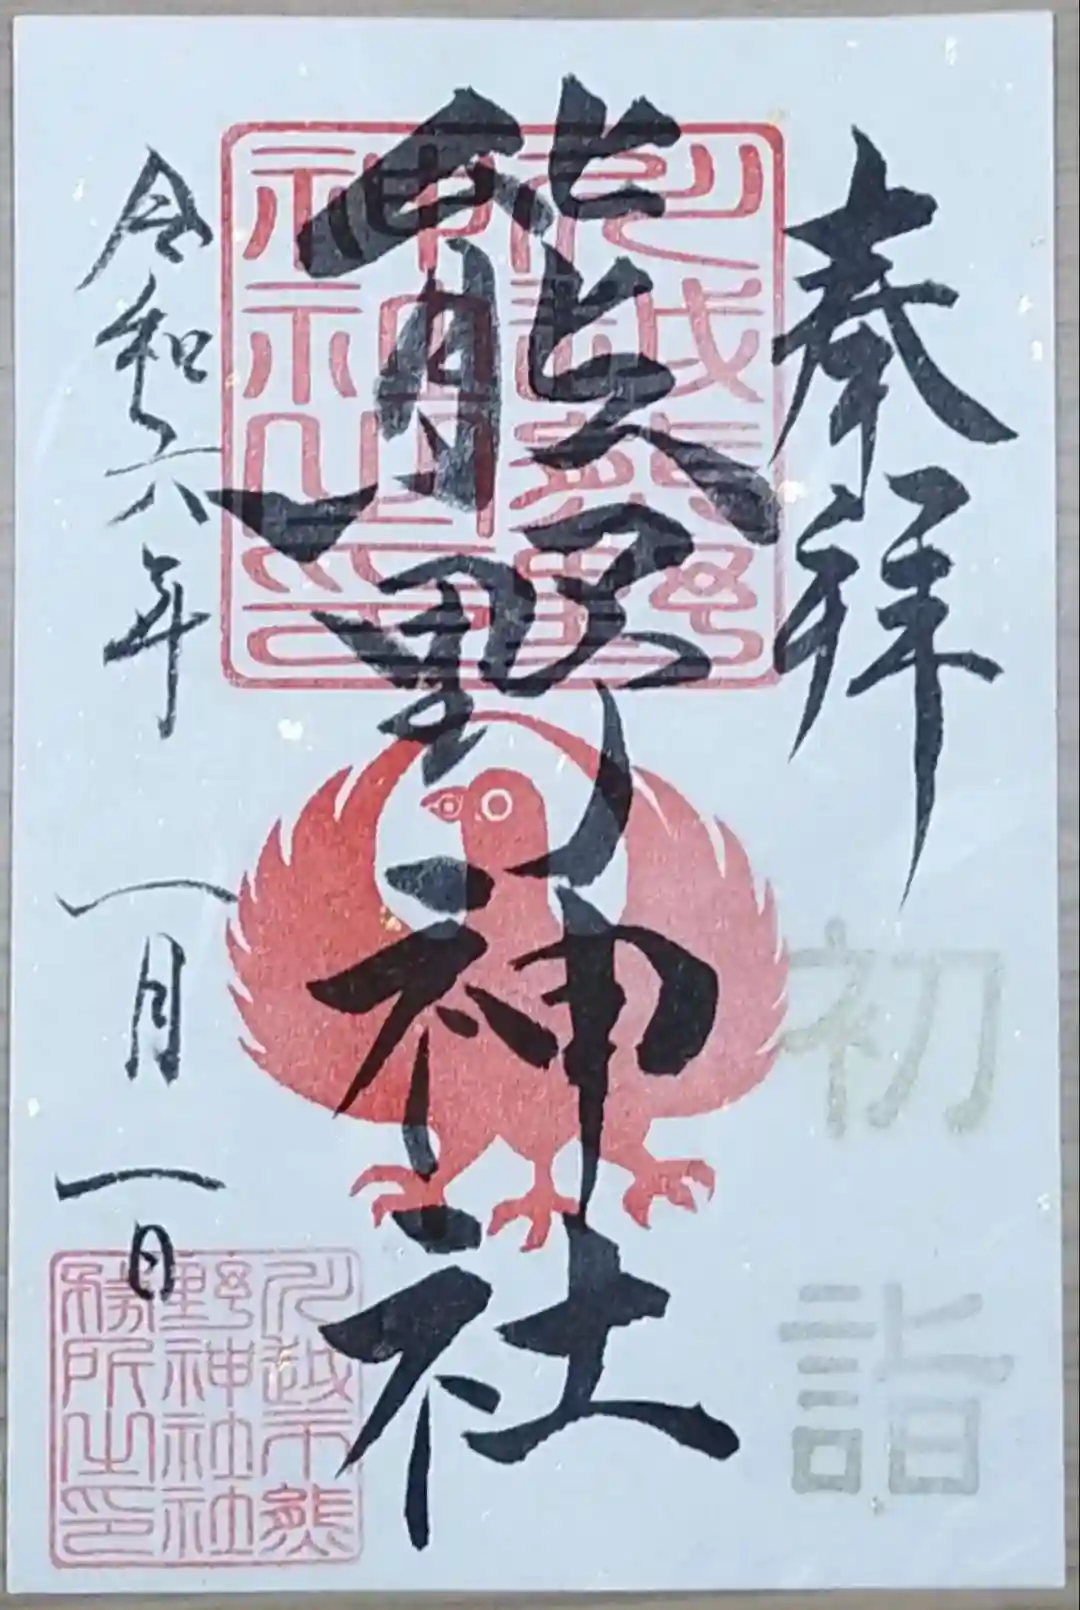 奉拝
初詣
熊野神社
川越市熊野神社之印
令和六年 一月一日
川越市熊野神社務所之印